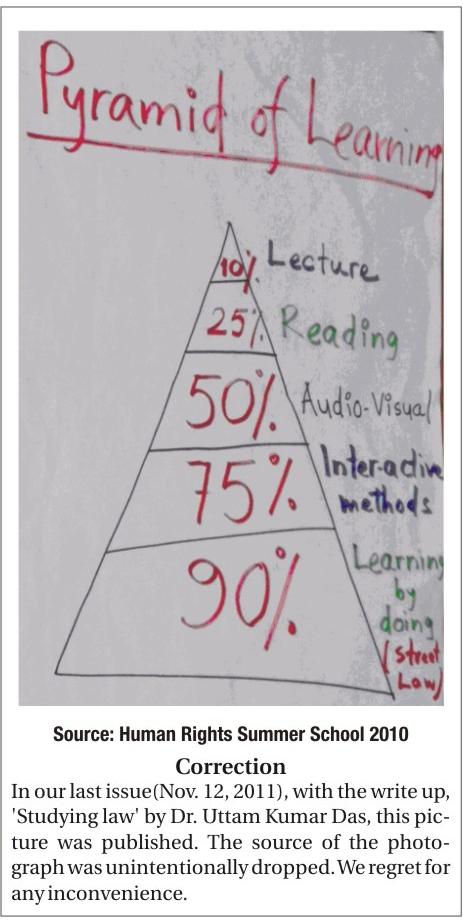 Pyramid of Learning
10% Lecture
25% Reading
50% Audio-Visual
75% Interactive
methods
90% Learning
by
doing
(Street
Law)
Source: Human Rights Summer School 2010
Correction
In our last issue(Nov. 12, 2011), with the write up,
'Studying law' by Dr. Uttam Kumar Das, this pic-
ture was published. The source of the photo-
graph was unintentionally dropped. We regret for
any inconvenience.